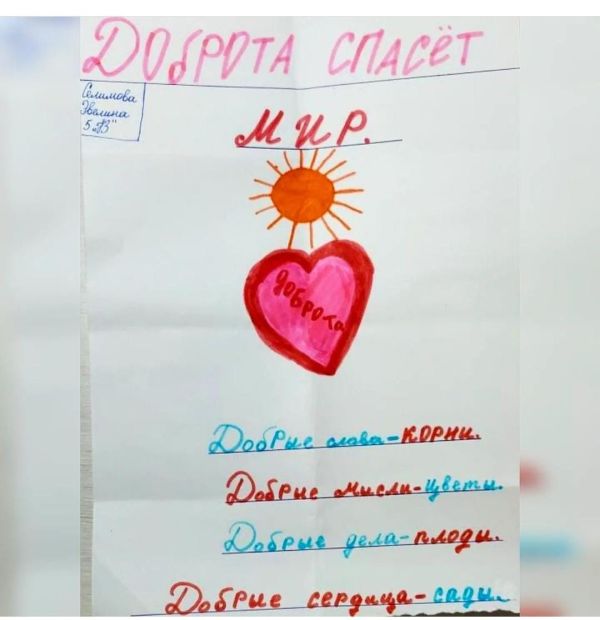 Доброта спасёт
Селимова
Эвелина
5 "В"
мир.
доброта
Добрые слова-корни.
Добрые мысли-цветы.
Добрые дела-плоды.
Добрые сердца-сады.